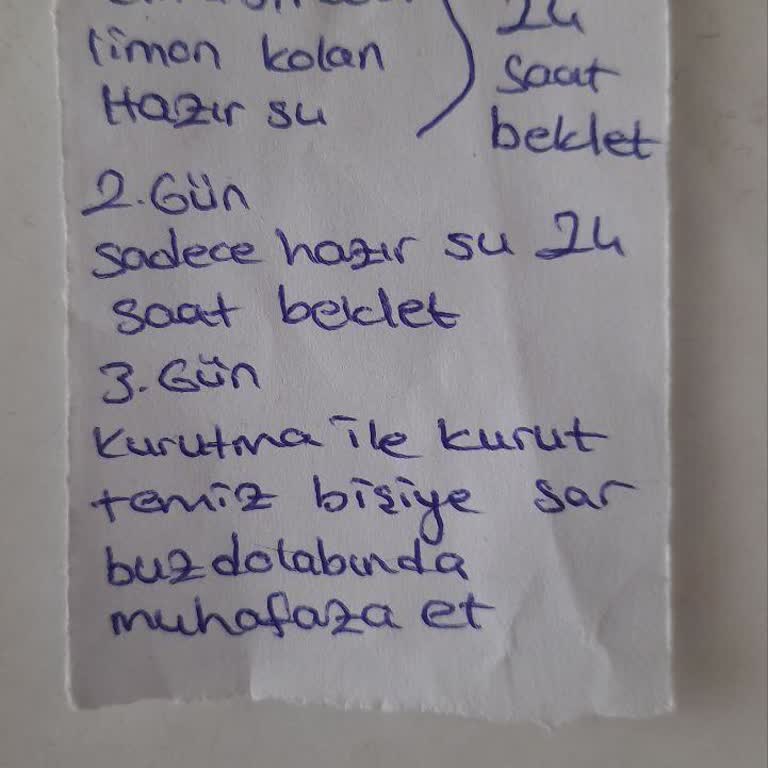 limon kolan
Hazır su
24
saat
beklet
2. Gün
sadece hazır su 24
saat beklet
3. Gün
kurutma ile kurut
temiz bişiye sar
buzdolabında
muhafaza et